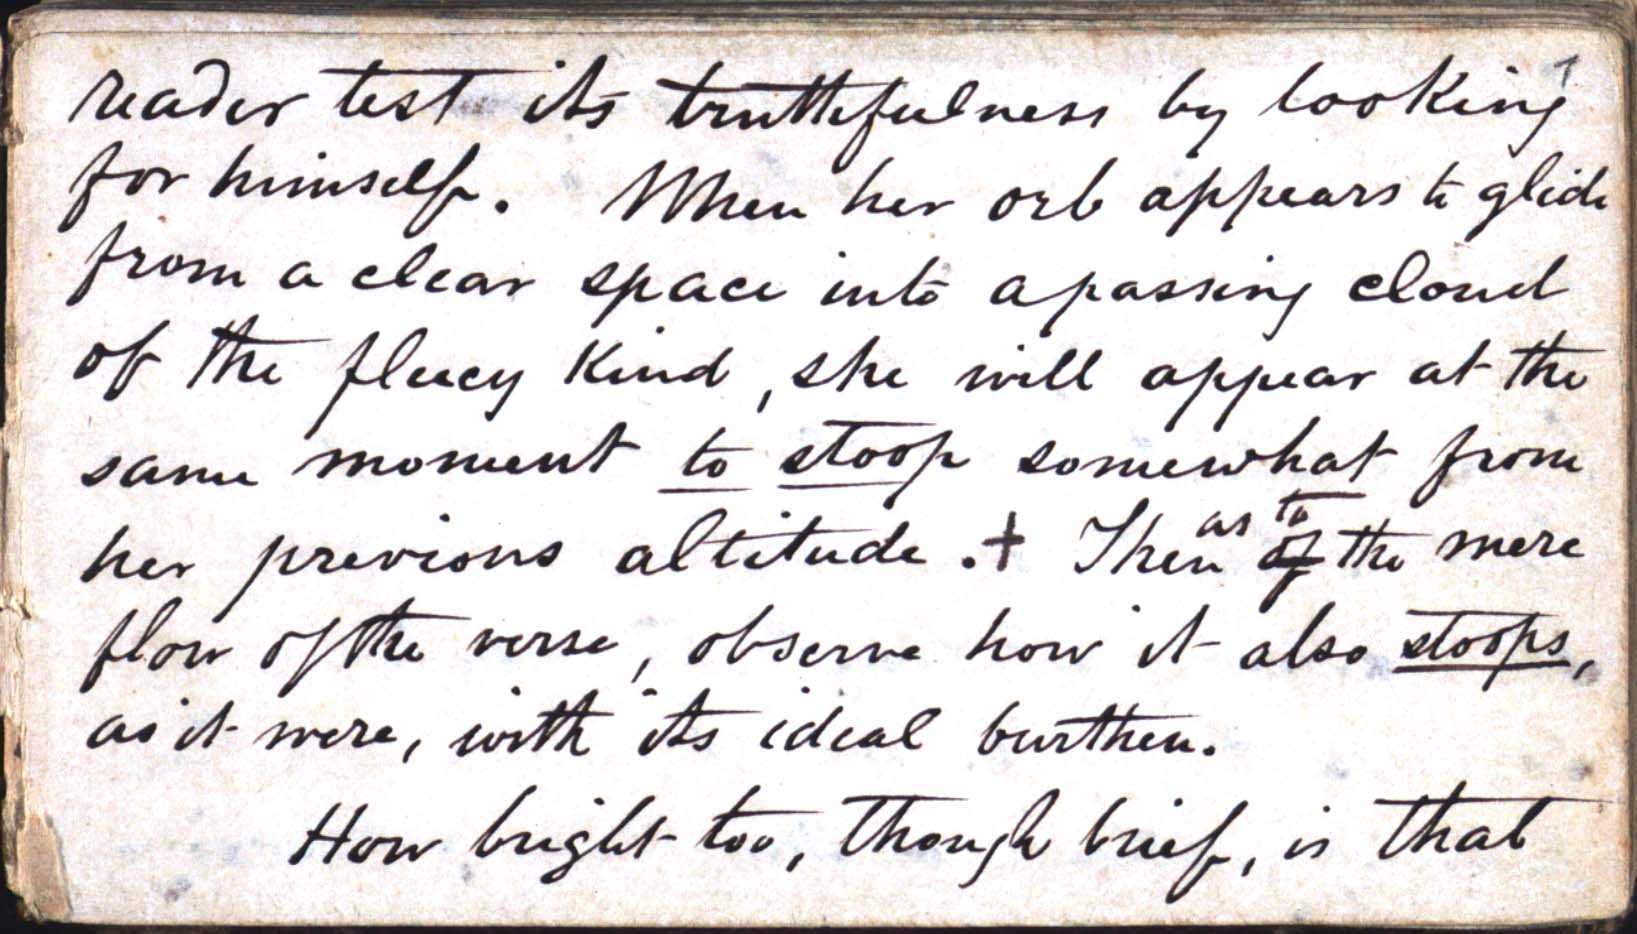 reader test its truthfulness by looking
for himself. When her orb appears to glide
from a clear space into a passing cloud
of the fleecy kind, she will appear at the
same moment to stoop somewhat from
her previous altitude. + Then as to of the mere
flow of the verse, observe how it also stoops,
as it were, with its ideal burthen.
How bright too, though brief, is that